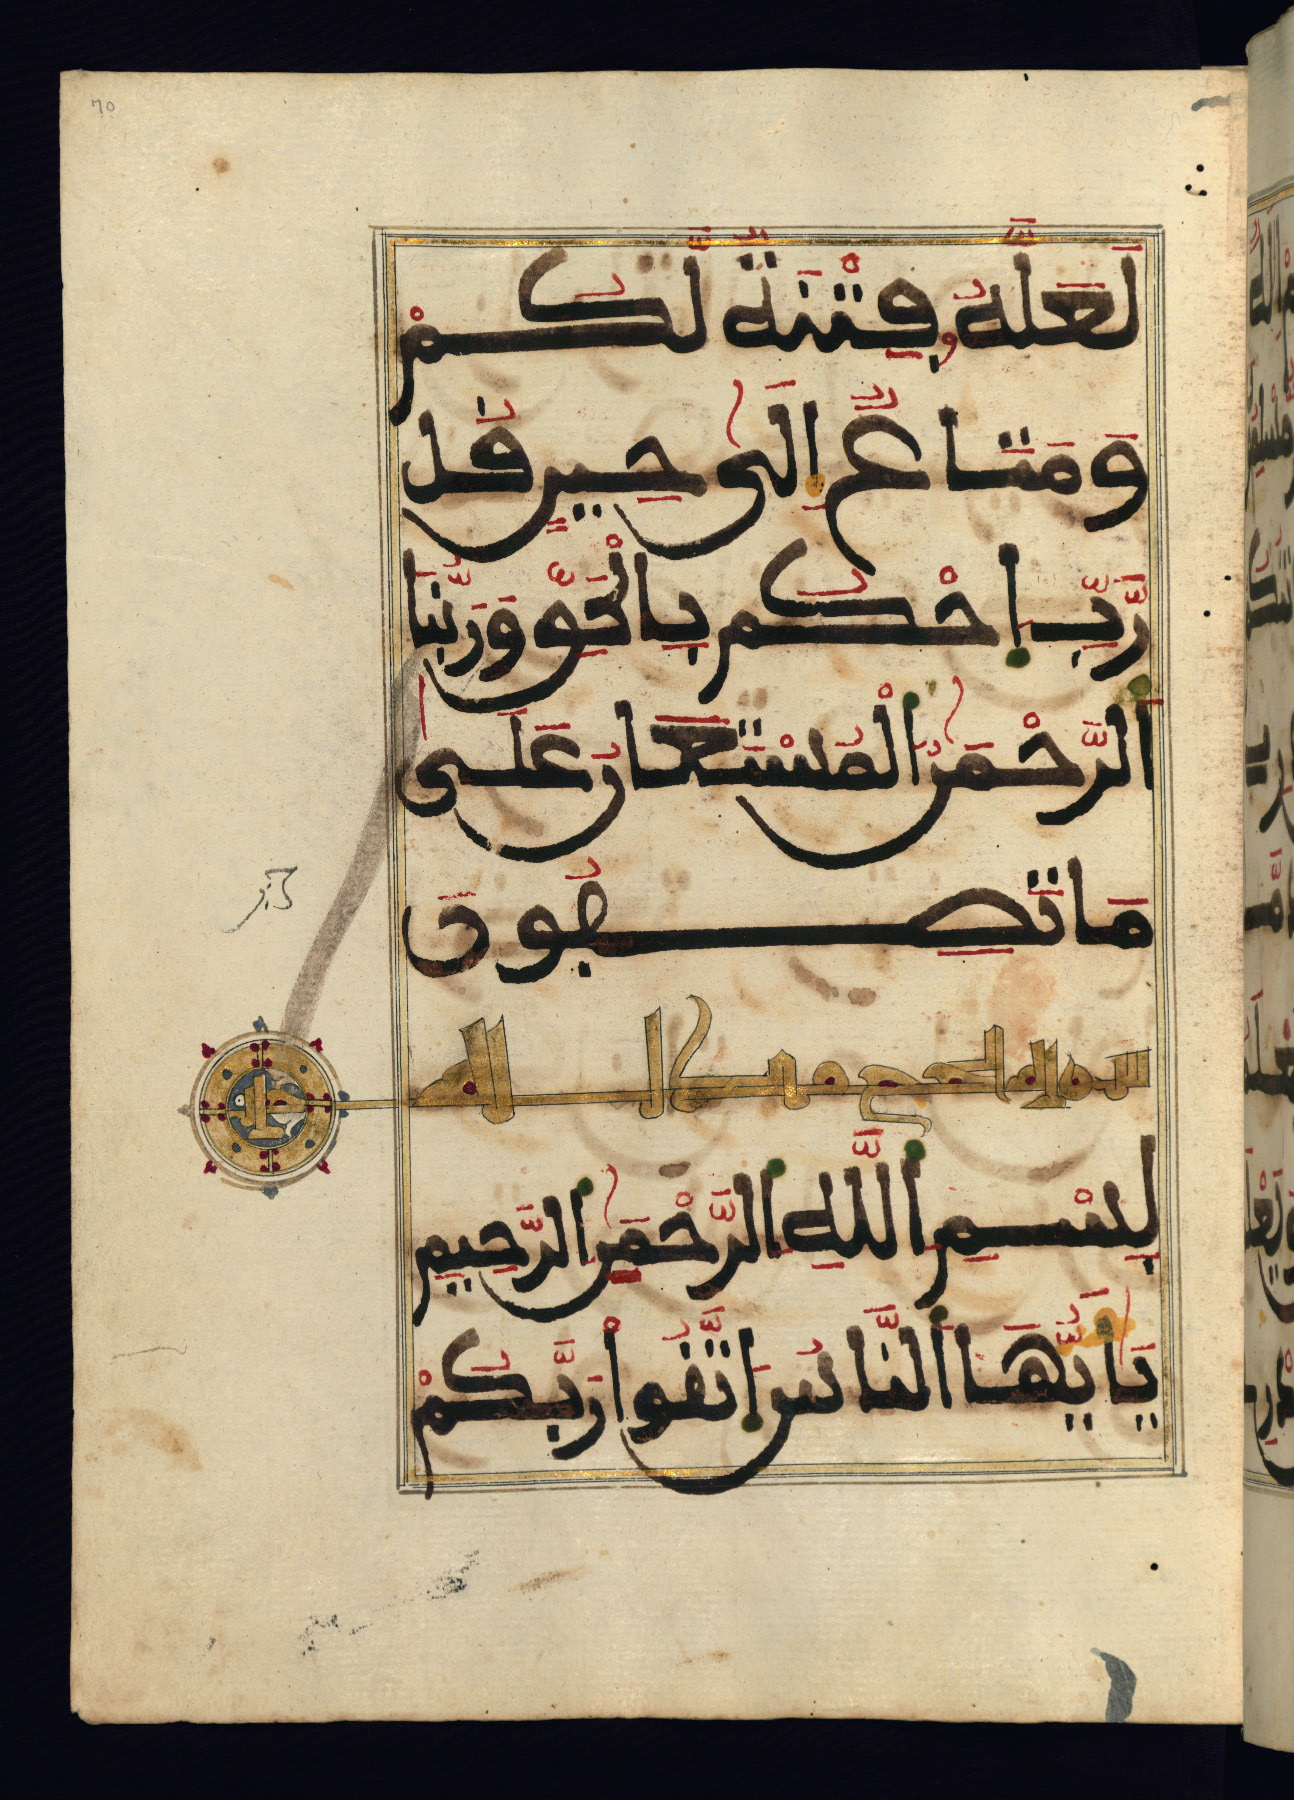 70
لَعَلَّهُ فِتْنَةٌ لَّكُمْ
وَمَتَاعٌ اِلَى حِينٍ قُل
رَّبِّ اِحْكُم بِالْحَقِّ وَرَبُّنَا
اَلرَّحْمَنُ اَلْمُسْتَعَانُ عَلَى
مَا تَصِفُونَ
سورة الحج
بِسْمِ اِللَّهِ اِلرَّحْمَنِ اِلرَّحِيمِ
يَاَيُّهَا اَلنَّاسُ اتَّقُواْ رَبَّكُمْ